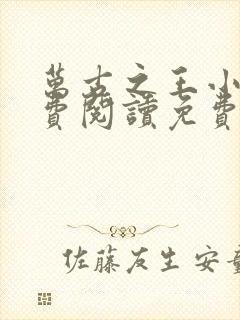 萬古之王小
費閱讀免費
佐藤友生 安